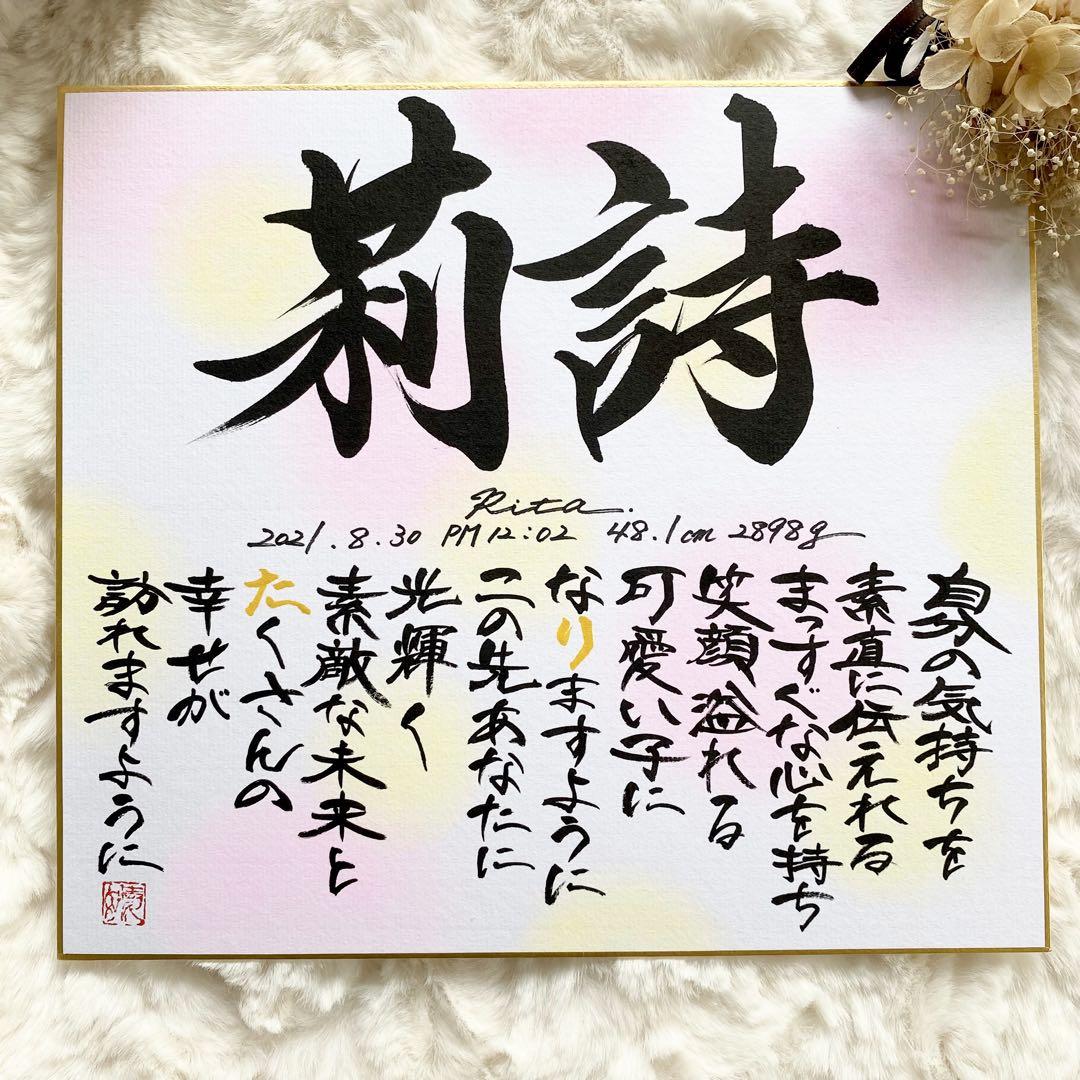 莉詩
Rita.
2021.8.30 PM12:02 48.1cm 2898g
自分の気持ちを
素直に伝えれる
まっすぐな心を持ち
笑顔溢れる
可愛い子に
なりますように
この先あなたに
光輝く
素敵な未来と
たくさんの
幸せが
訪れますように